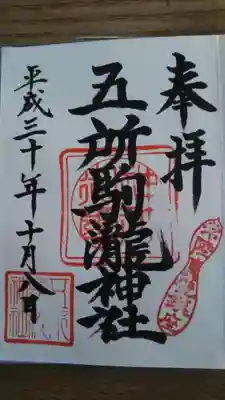 奉拝
五所駒瀧神社
平成三十年十月八日